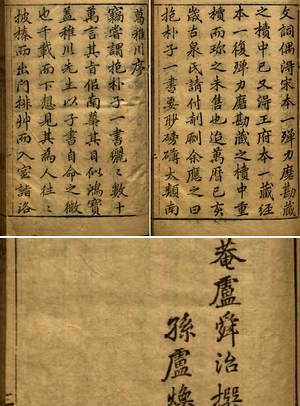 文詞偶淂宋本一殫力磨勘藏
之櫝中已又淂王府本一藏經
本一復殫力磨勘之櫝中重
櫝而珎之未售也迨萬曆己亥
歲古泉氏請付剞劂余應之曰
抱朴子一書要眇磅礴大類南
葛稚川序
竊嘗謂抱朴子一書纚〻數十
萬言其旨似南華其目似鴻寶
蓋稚川先生以子書自命之微
也千載而下想見其為人往〻
披榛而出門排艸而入室諸洛
菴盧舜治撰
孫盧煥